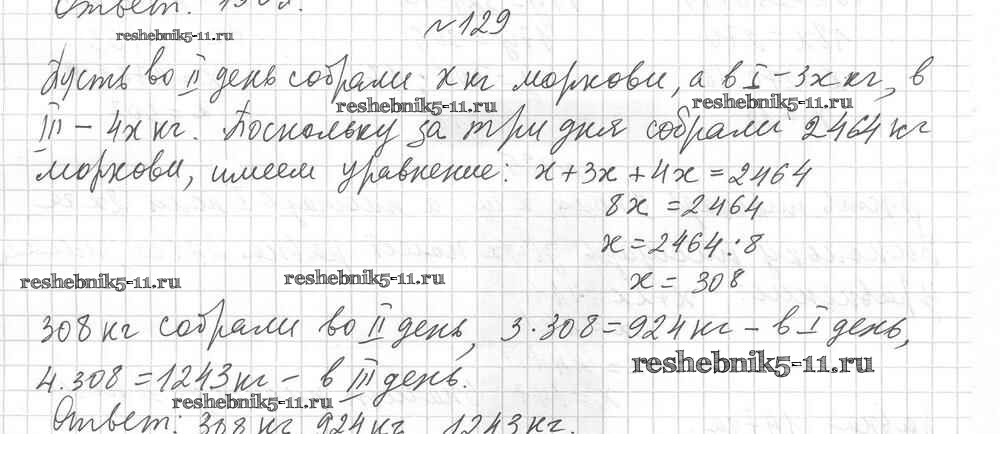 Ответ:
reshebnik5-11.ru
№129
Пусть во II день собрали x кг моркови, а в I – 3x кг, в
reshebnik5-11.ru
reshebnik5-11.ru
III – 4x кг. Поскольку за три дня собрали 2464 кг
моркови, имеем уравнение: x+3x+4x=2464
8x =2464
x=2464:8
x= 308
reshebnik5-11.ru
reshebnik5-11.ru
308 кг собрали во II день, 3·308=924 кг – в I день,
reshebnik5-11.ru
4.308=1243 кг – в III день.
reshebnik5-11.ru
Ответ: 308 кг, 924 кг, 1243 кг.